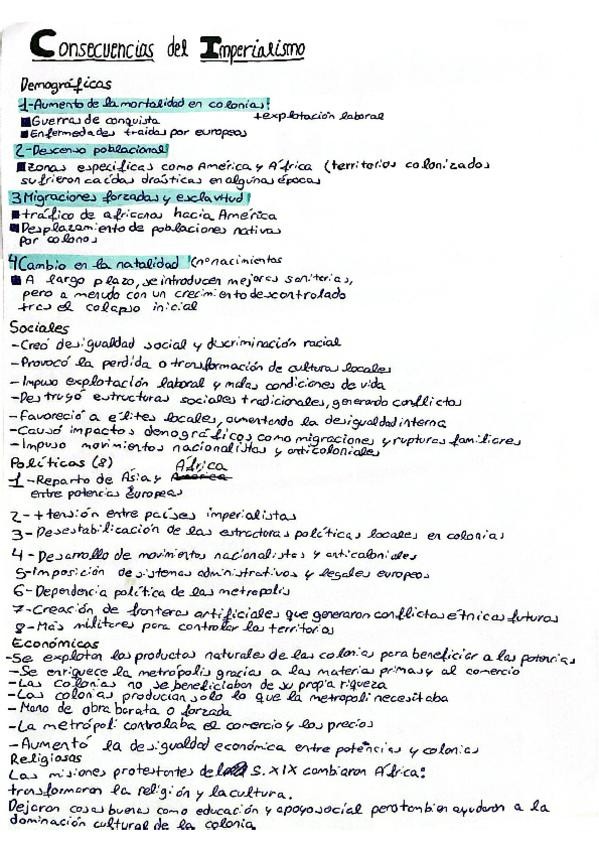 Consecuencias del Imperialismo
Demográficas
1-Aumento de la mortalidad en colonias:
■Guerras de conquista +explotación laboral
■Enfermedades traidas por europeos
2-Descenso poblacional
■zonas específicas como América y África (territorios colonizados
sufrieron caídas drásticas en algunas épocas
3 Migraciones forzadas y esclavitud
■tráfico de africanos hacia América
■Desplazamiento de poblaciones nativas
por colonos
4 Cambio en la natalidad (nº nacimientos
■A largo plazo, se introducen mejoras sanitarias,
pero a menudo con un crecimiento descontrolado
tras el colapso inicial
Sociales
-Creó desigualdad social y discriminación racial
-Provocó la perdida o transformación de cultura locales
-Impuso explotación laboral y malas condiciones de vida
-Destruyó estructuras sociales tradicionales, generando conflictos
-Favoreció a élites locales, aumentando la desigualdad interna
-Causó impactos demográficos como migraciones y rupturas familiares
-Impuso movimientos nacionalistas y anticoloniales
Políticas (8)
1-Reparto de Asia y África
entre potencias Europeas
2-+tensión entre países imperialistas
3-Desestabilización de las estructuras políticas locales en colonias
4-Desarrollo de movimientos nacionalistas y anticoloniales
5-Imposición de sistemas administrativos y legales europeos
6-Dependencia política de las metropolis
7-Creación de fronteras artificiales que generaron conflictos étnicas futuras
8-Más militares para controlar los territorios
Económicas
-Se explotan los productos naturales de las colonias para beneficiar a las potencias
-Se enriquece la metrópolis gracias a las materias primas y al comercio
-Las colonias no se beneficiaban de su propia riqueza
-Las colonias producían solo lo que la metropoli necesitaba
-Mano de obra barata o forzada
-La metrópoli controlaba el comercio y los precios
-Aumentó la desigualdad económica entre potencias y colonias
Religiosas
Las misiones protestantes del S.XIX cambiaron África:
transformaron la religión y la cultura.
Dejaron cosas buenas como educación y apoyo social pero tambien ayudaron a la
dominación cultural de la colonia